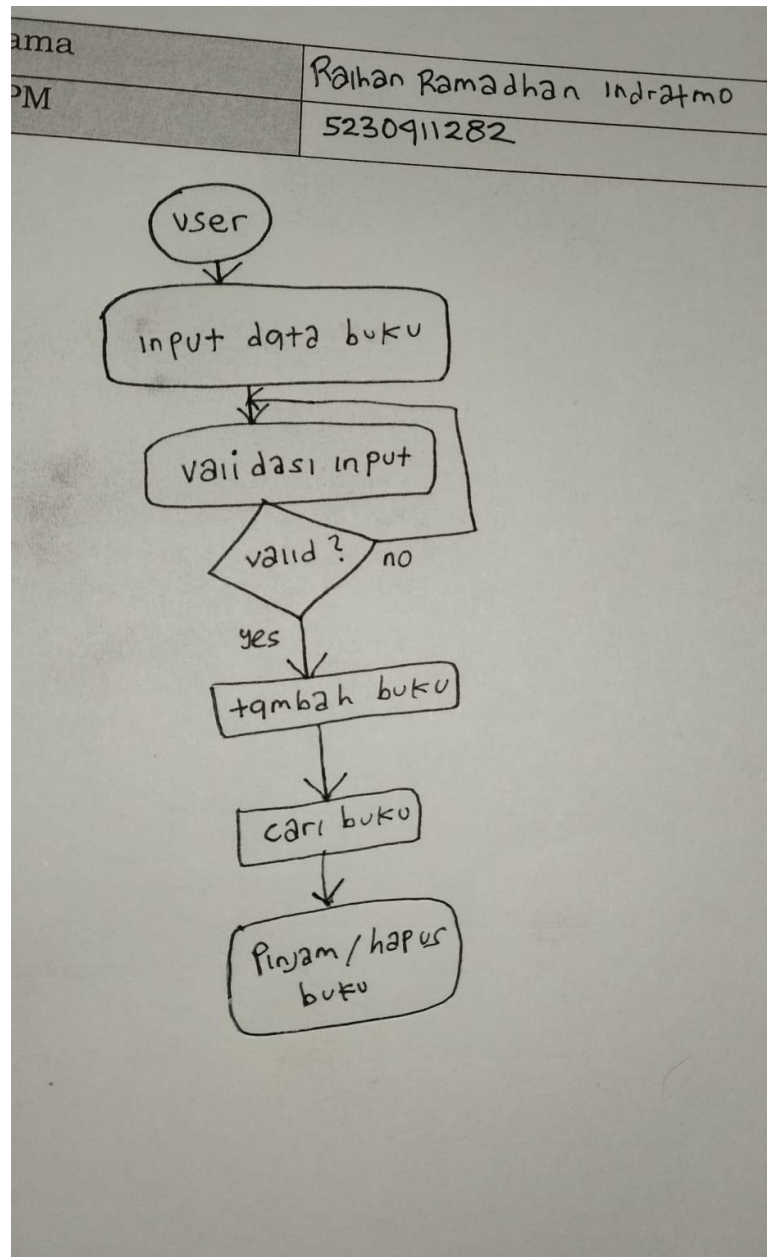 ama
Raihan Ramadhan Indratmo
PM
5230911282
user
input data buku
validasi input
valid?
no
yes
tambah buku
cari buku
Pinjam/hapus
buku